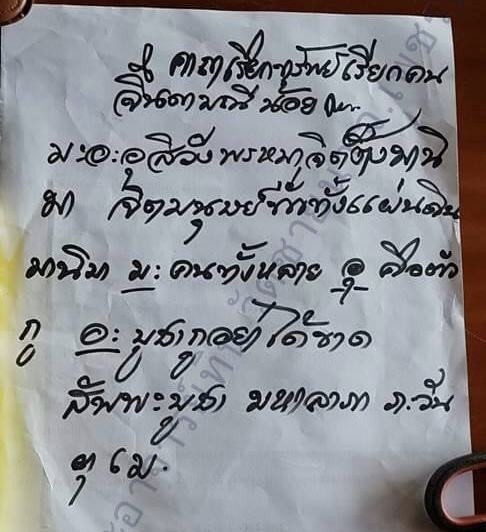 คาถาเรียกทรัพย์เรียกคน
จินดามณี น้อย
มะอะอุ สิวัง พรหมาจิตตังมานิ
มา จิตมนุษย์ทั่วทั้งแผ่นดิน
มานิมา มะ คนทั้งหลาย อุ คือตัว
กู อะ บูชากูอย่าได้ขาด
สัพพะบูชา มหาลาภา ภะวัน
ตุ เม.